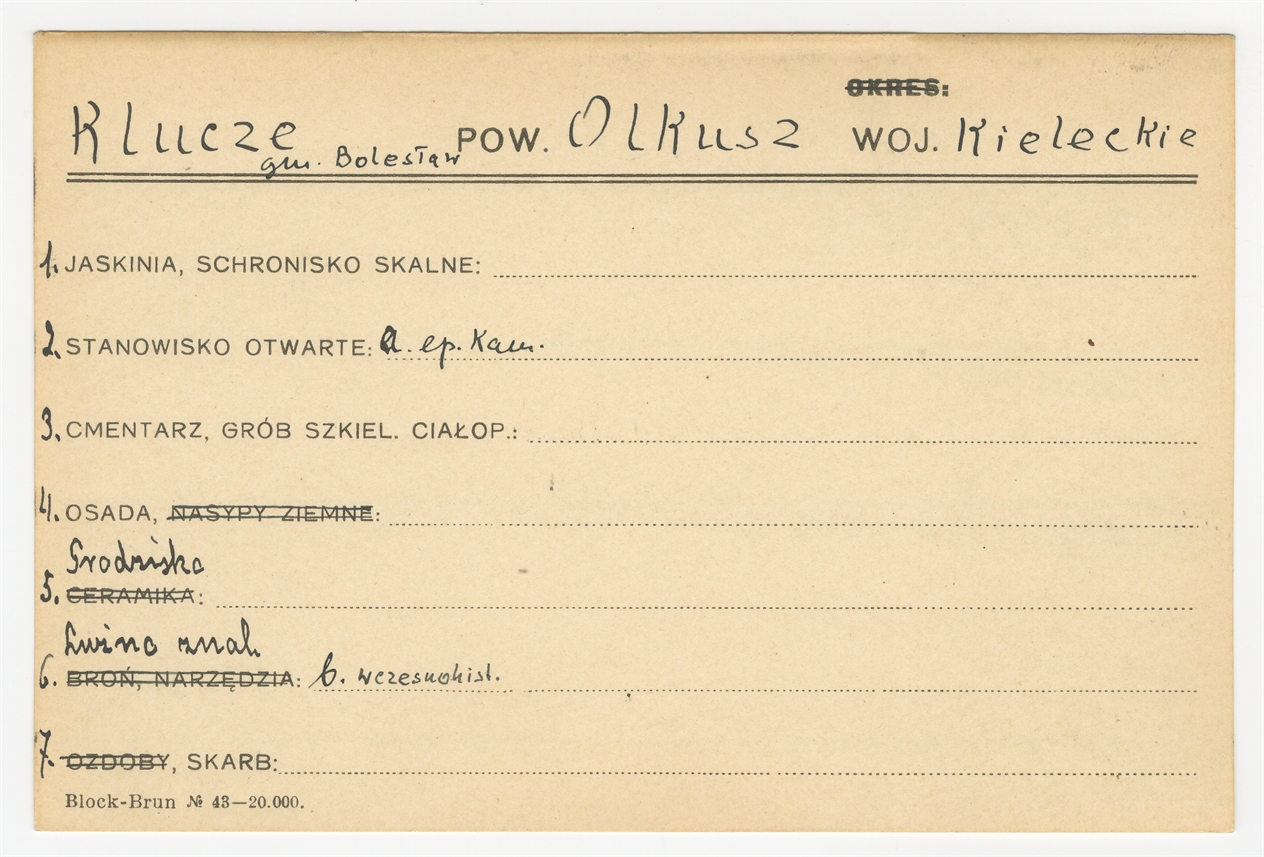 OKRES:
Klucze POW. Olkusz WOJ. Kieleckie
gm. Bolesław
1. JASKINIA, SCHRONISKO SKALNE:
2. STANOWISKO OTWARTE: a. ep. Kam.
3. CMENTARZ, GRÓB SZKIEL. CIAŁOP.:
4. OSADA, NASYPY ZIEMNE:
Grodzisko
5. CERAMIKA:
Luźno znal.
6. BROŃ, NARZĘDZIA: b. wczesnohist.
7. OZDOBY, SKARB:
Block-Brun № 43—20.000.